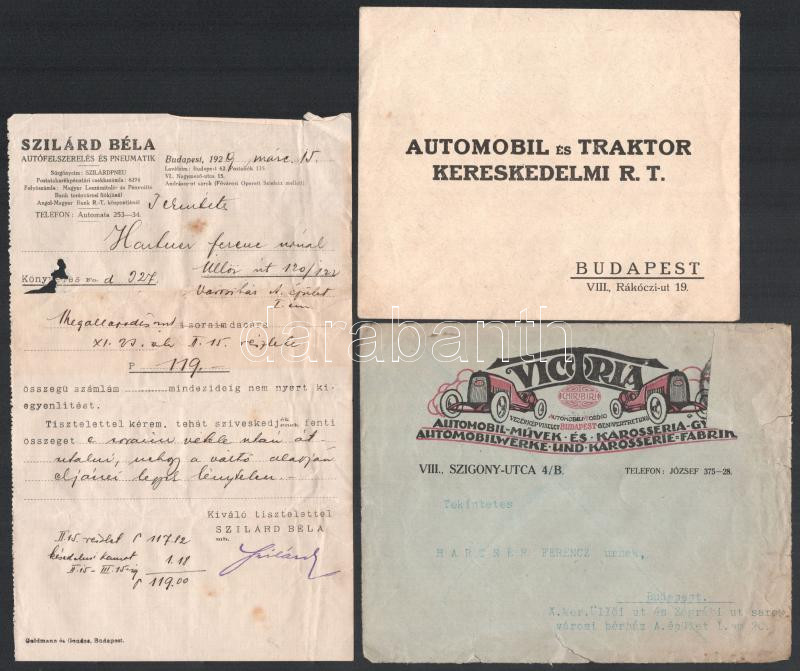 SZILÁRD BÉLA
AUTÓFELSZERELÉS ÉS PNEUMATIK
Sürgönycím: SZILÁRDPNEU
Postatakarékpénztári csekkszámla: 6276
Folyószámla: Magyar Leszámitoló- és Pénzváltó
Bank terézvárosi fiókjánál
Angol-Magyar Bank R.-T. központjánál
TELEFON: Automata 253—34.
Budapest, 1929 márc. 15.
Levélcím: Budapest 62, Postafiók 115.
VI. Nagymező-utca 15.
Andrássy-ut sarok (Fővárosi Operett Színház mellett)
Tekintetes
Hartner Ferenc urnak
Üllői út 120/122
Városiház A. épület
I. em.
Könyvelés Fo. d 927.
Megállapodásunk soraim dacára
XI. 23. II. 15. részlete
P 119.
összegü számlám mindezideig nem nyert ki-
egyenlitést.
Tisztelettel kérem, tehát sziveskedjék fenti
összeget e soraim vétele után át-
utalni, nehogy a váltó alapján
eljárni legyek kénytelen.—
Kiváló tisztelettel
SZILÁRD BÉLA
Szilárd
II. 15. részlet P 117.82
késedelmi kamat 1.18
II. 15 – III. 15ig
P 119.00
Goldmann és Gendes, Budapest.
AUTOMOBIL ÉS TRAKTOR
KERESKEDELMI R. T.
BUDAPEST
VIII., Rákóczi-ut 19.
VICTORIA
CHIRIBIRI
AUTOMOBILI TORINO
VEZÉRKÉPVISELET BUDAPEST GENVERTRETUNG
AUTOMOBIL-MÜVEK-ÉS-KAROSSERIA-GY
AUTOMOBILWERKE-UND-KAROSSERIE-FABRIK
VIII., SZIGONY-UTCA 4/B.
TELEFON: JÓZSEF 375-28.
Tekintetes
HARTNER FERENCZ urnak,
Budapest.
X.ker.Üllői ut és Zágrábi ut sarok
városi bérház A.épület I.em 20.
darabanth